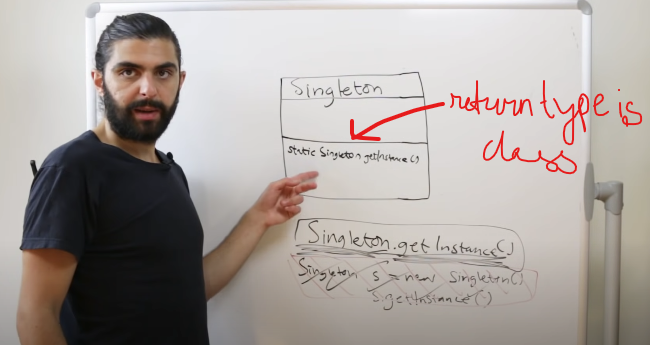 Singleton
static Singleton getInstance()
return type is
class
Singleton.getInstance()
Singleton s = new Singleton()
s.getInstance()